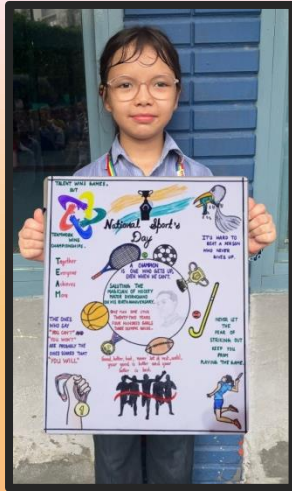 TALENT WINS GAMES,
BUT
TEAMWORK
WINS
CHAMPIONSHIPS.
National Sport's
Day
IT'S HARD TO
BEAT A PERSON
WHO NEVER
GIVES UP.
Together
Everyone
Achieves
More
A CHAMPION
IS ONE WHO GETS UP,
EVEN WHEN HE CAN'T.
SALUTING THE
MAGICIAN OF HOCKEY
MAJOR DHYANCHAND
ON HIS BIRTH ANNIVERSARY.
TWENTY-TWO YEARS
FOUR HUNDRED GOALS
THE ONES
WHO SAY
"YOU CAN'T" AND
"YOU WON'T"
ARE PROBABLY THE
ONES SCARED THAT
"YOU WILL."
NEVER LET
THE
FEAR OF
STRIKING OUT
KEEP YOU
FROM
PLAYING THE GAME.
Good, better, best, never let it rest, until
your good is better and your
better is best.